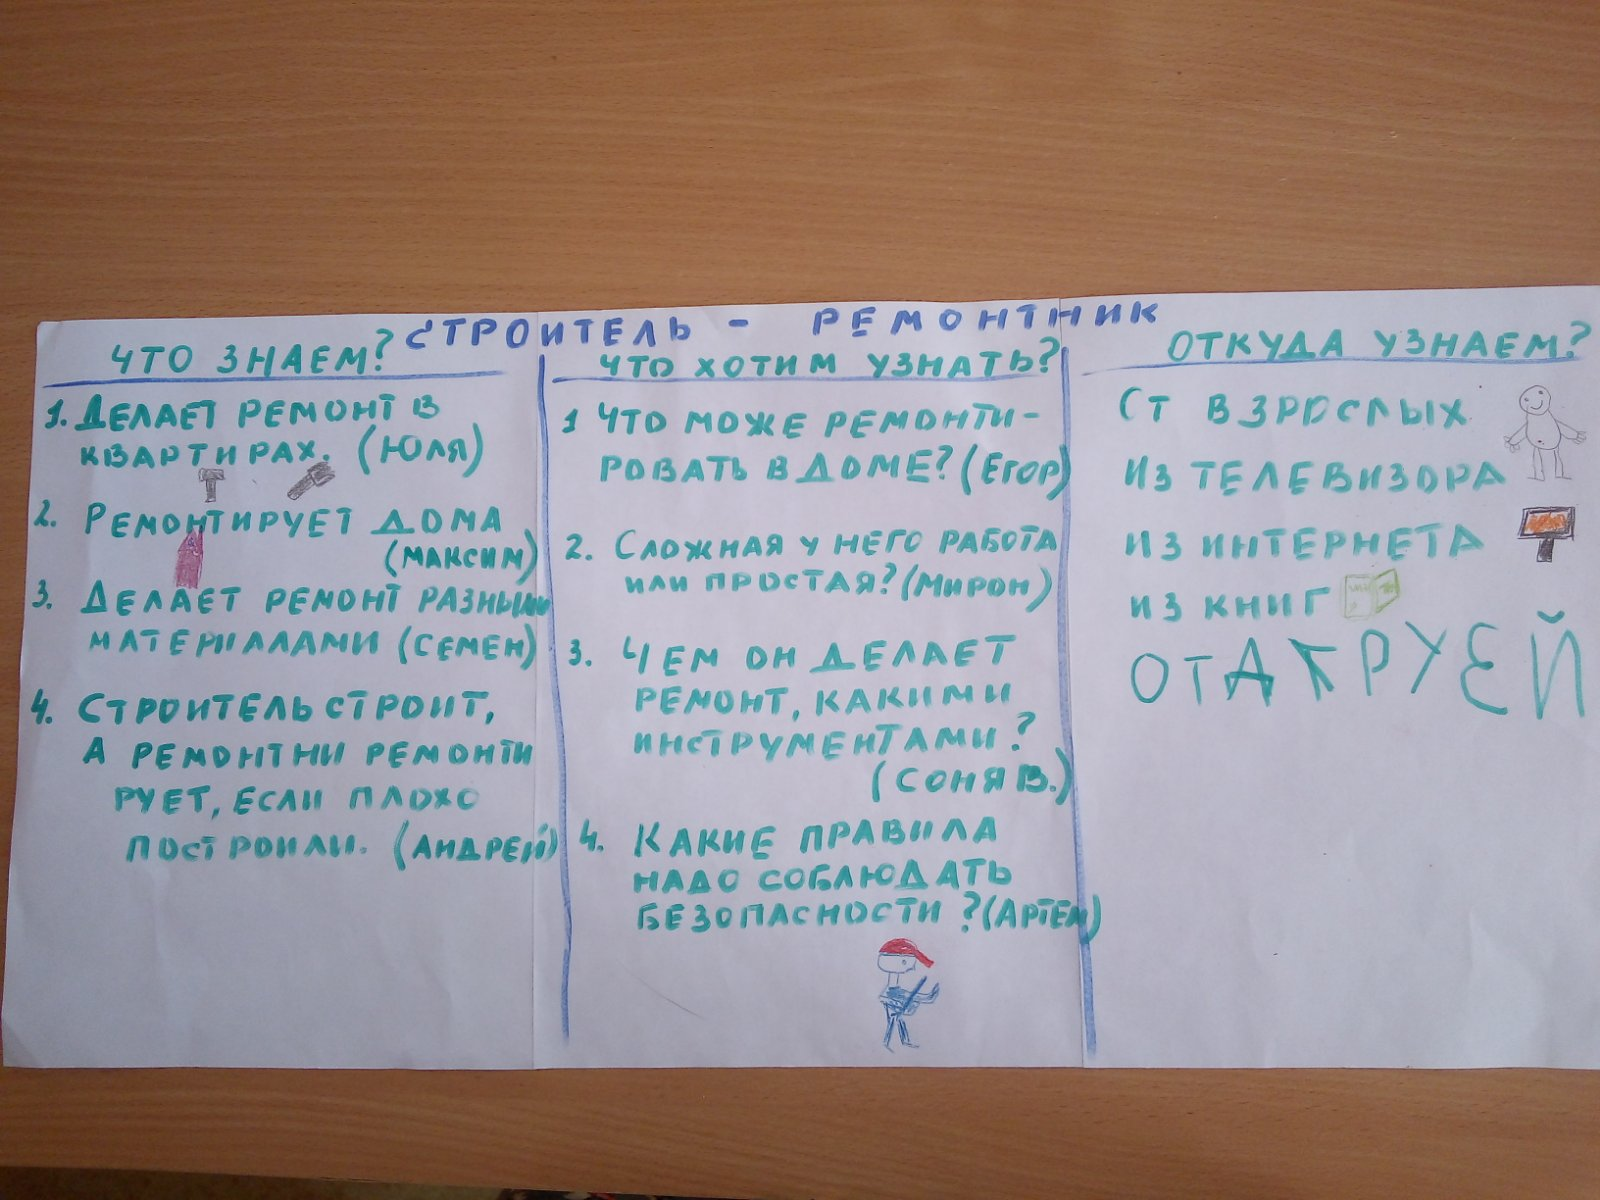 СТРОИТЕЛЬ - РЕМОНТНИК
ЧТО ЗНАЕМ?
1. ДЕЛАЕТ РЕМОНТ В
КВАРТИРАХ. (ЮЛЯ)
2. РЕМОНТИРУЕТ ДОМА
(МАКСИМ)
3. ДЕЛАЕТ РЕМОНТ РАЗНЫМИ
МАТЕРИАЛАМИ (СЕМЕН)
4. СТРОИТЕЛЬ СТРОИТ,
А РЕМОНТНИ РЕМОНТИ
РУЕТ, ЕСЛИ ПЛОХО
ПОСТРОИЛИ. (АНДРЕЙ)
ЧТО ХОТИМ УЗНАТЬ?
1 ЧТО МОЖЕ РЕМОНТИ-
РОВАТЬ В ДОМЕ? (ЕГОР)
2. СЛОЖНАЯ У НЕГО РАБОТА
ИЛИ ПРОСТАЯ? (МИРОН)
3. ЧЕМ ОН ДЕЛАЕТ
РЕМОНТ, КАКИМИ
ИНСТРУМЕНТАМИ?
(СОНЯ В.)
4. КАКИЕ ПРАВИЛА
НАДО СОБЛЮДАТЬ
БЕЗОПАСНОСТИ? (АРТЕМ)
ОТКУДА УЗНАЕМ?
СТ ВЗРОСЛЫХ
ИЗ ТЕЛЕВИЗОРА
ИЗ ИНТЕРНЕТА
ИЗ КНИГ
ОТДКРУЕЙ